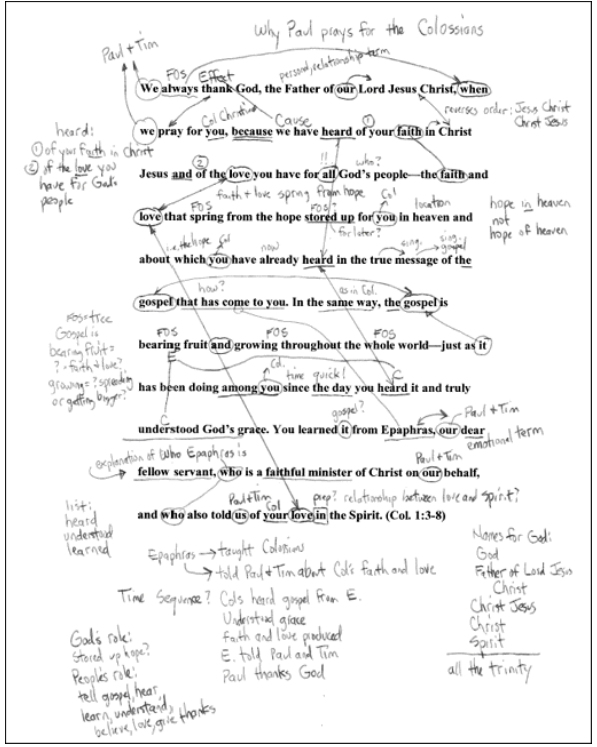 Why Paul prays for the Colossians
Paul + Tim
FOS Effect personal, relationship term
We always thank God, the Father of our Lord Jesus Christ, when
reverses order: Jesus Christ
Christ Jesus
Col Christians Cause ①
we pray for you, because we have heard of your faith in Christ
heard:
① of your faith in Christ
② of the love you
have for God's
people
② !! who?
Jesus and of the love you have for all God's people—the faith and
faith + love spring from hope
FOS FOS? Col location
love that spring from the hope stored up for you in heaven and
hope in heaven
not
hope of heaven
for later?
i.e. the hope Col now sing. sing. gospel
about which you have already heard in the true message of the
how? as in Col.
gospel that has come to you. In the same way, the gospel is
FOS=tree
Gospel is
bearing fruit=
? - faith + love?
growing=? spreading
or getting bigger?
FOS FOS FOS
bearing fruit and growing throughout the whole world—just as it
E Col. time quick! C
has been doing among you since the day you heard it and truly
C gospel? Paul + Tim
understood God's grace. You learned it from Epaphras, our dear
emotional term
explanation of who Epaphras is Paul + Tim
fellow servant, who is a faithful minister of Christ on our behalf,
Paul + Tim Col prep? relationship between love and spirit?
and who also told us of your love in the Spirit. (Col. 1:3-8)
list:
heard
understood
learned
Epaphras → taught Colossians
→ told Paul + Tim about Col's faith and love
Time Sequence? Cols heard gospel from E.
Understood grace
Faith and love produced
E. told Paul and Tim
Paul thanks God
Names for God:
God
Father of Lord Jesus
Christ
Christ Jesus
Christ
Spirit
all the trinity
God's role:
Stored up hope?
People's role:
tell gospel, hear
learn, understand,
believe, love, give thanks